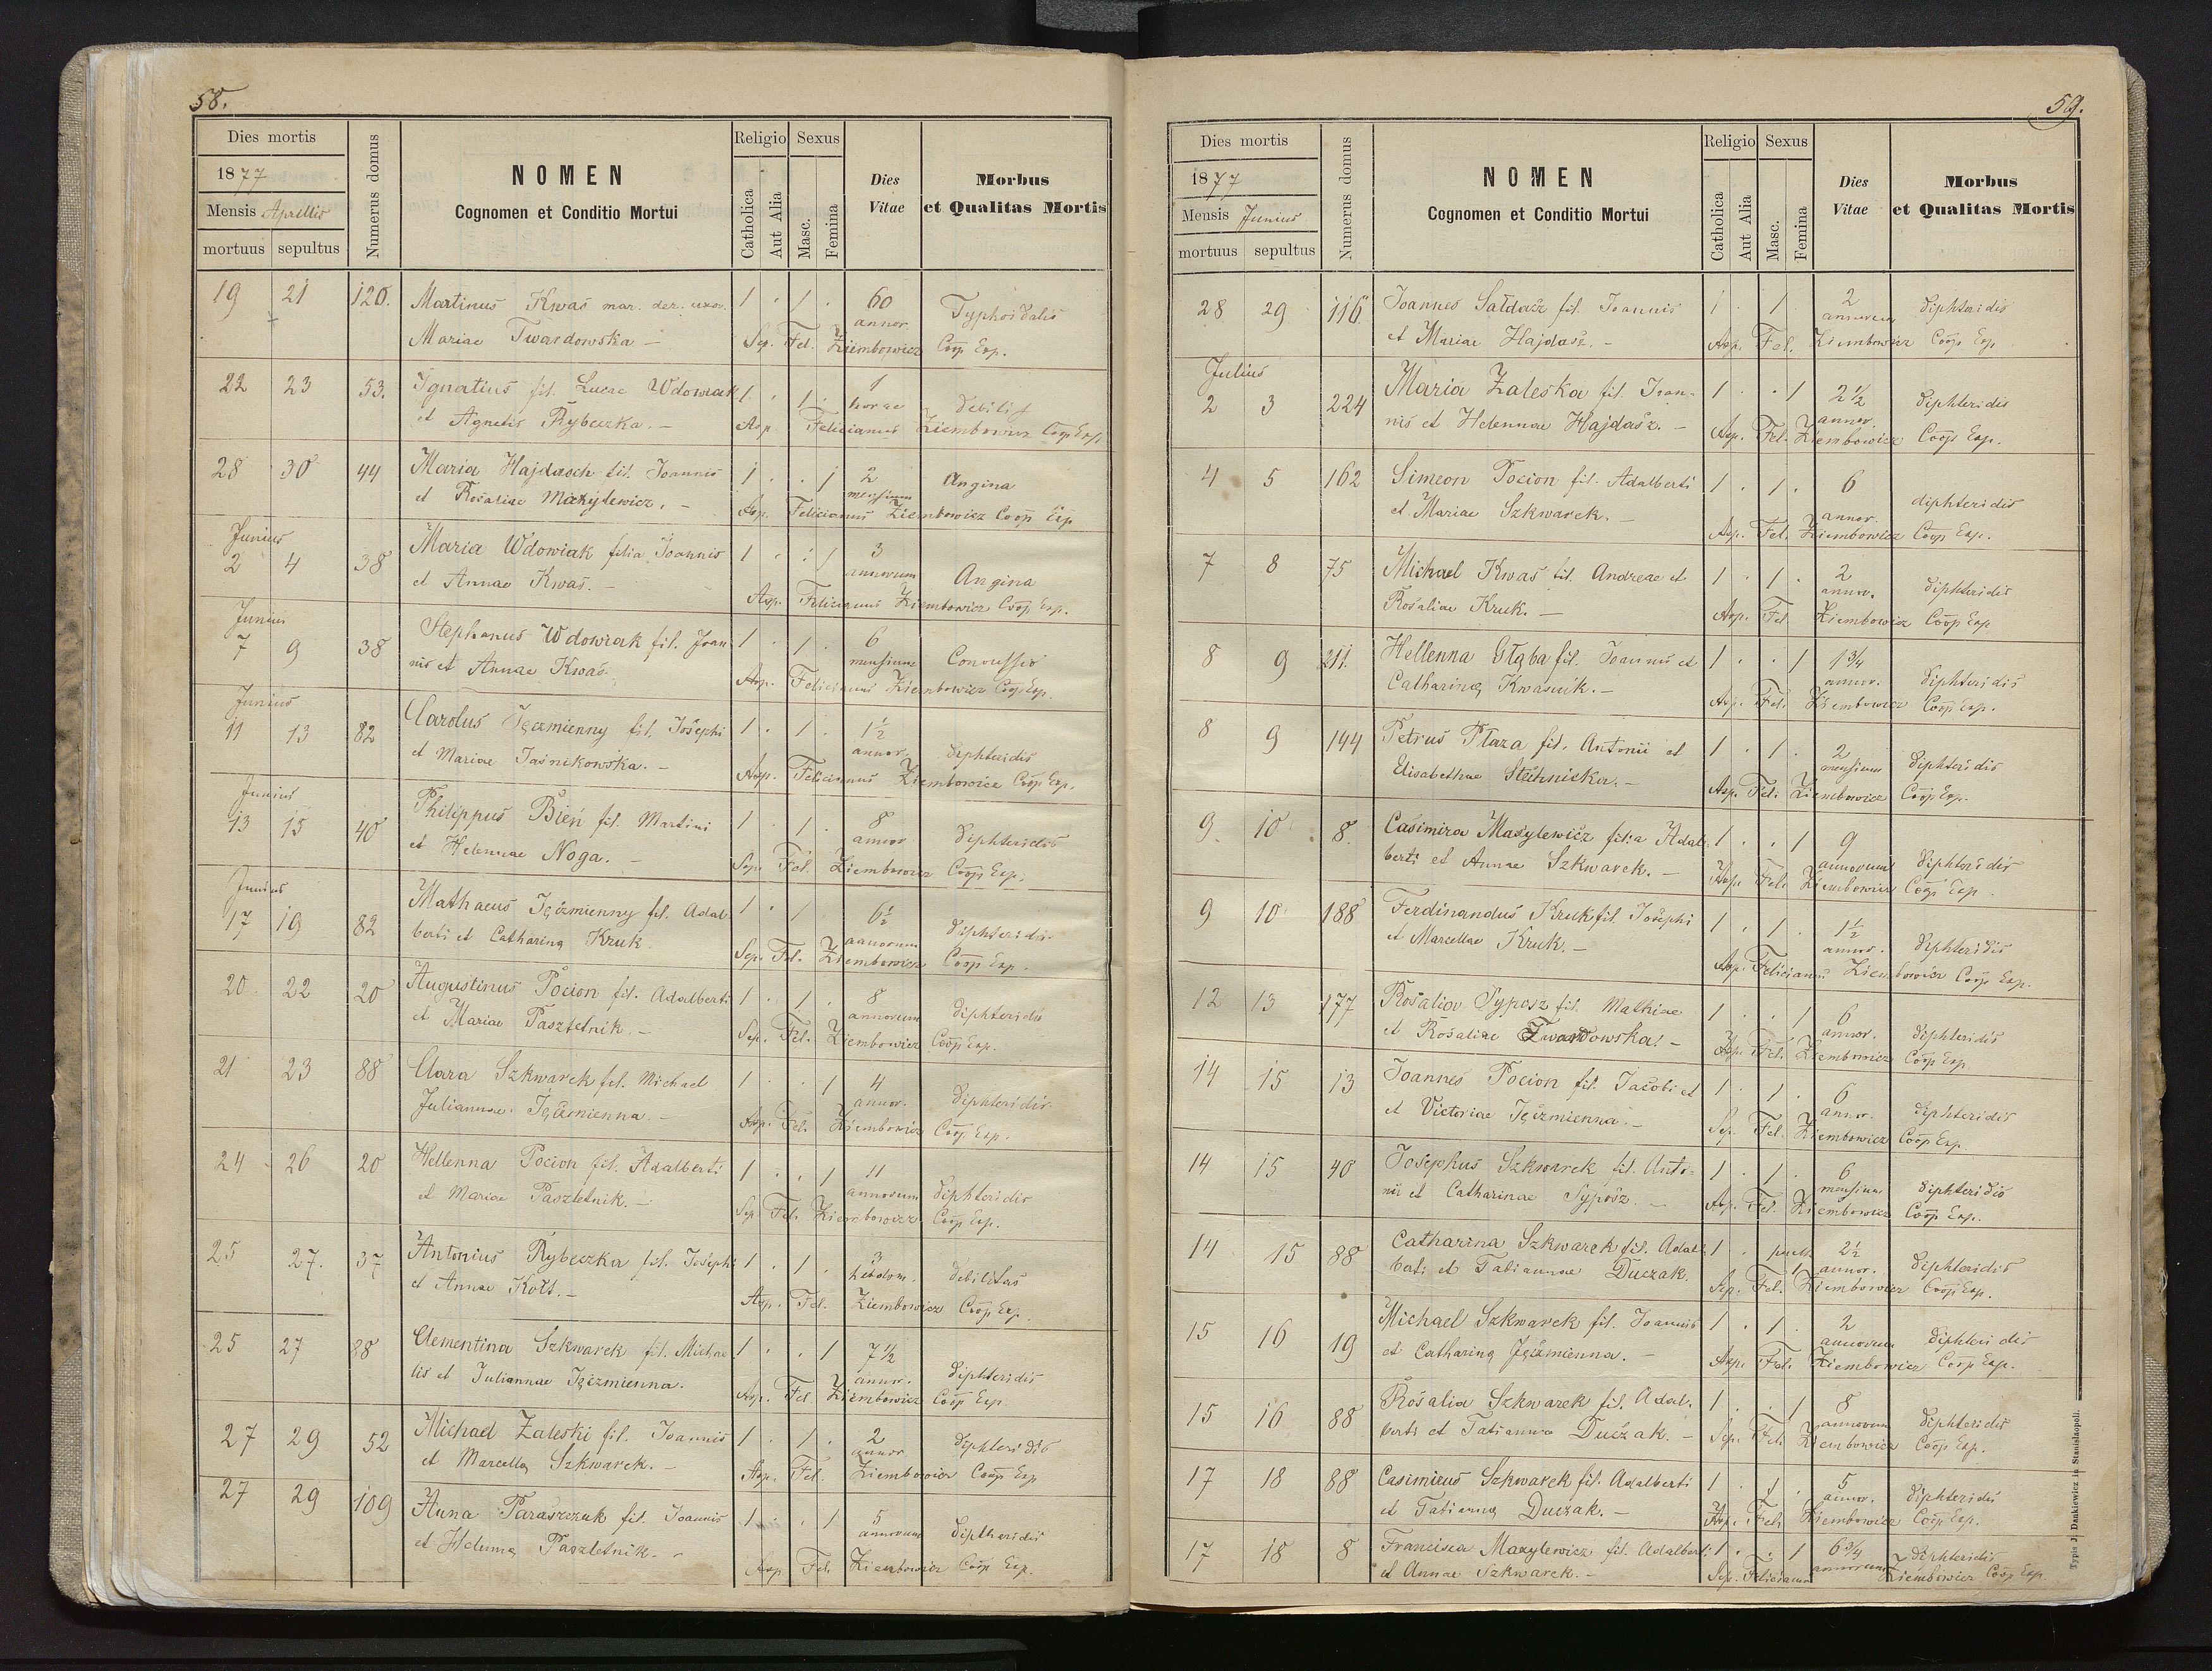 58.
Dies mortis
1877
Mensis Aprillis
mortuus sepultus
Numerus domus
NOMEN
Cognomen et Conditio Mortui
Religio
Catholica
Aut Alia
Sexus
Masc.
Femina
Dies
Vitae
Morbus
et Qualitas Mortis
19 21 120. Martinus Kwaś mar. der. uxor. 1 . 1 . 60 annor. Typhoidalis
Mariae Twardowska - Sep. Fel. Ziembowicz Coop Exp.
22 23 53. Ignatius fil. Lucae Wdowiak 1 . 1 . 1 horae
et Agnetis Rybeczka. - Asp. Felicianus Ziembowicz Coop Exp.
28 30 44 Maria Hajdasch fil. Joannis 1 . . 1 2 mensium Angina
et Rosaliae Maxylewicz. - Asp. Felicianus Ziembowicz Coop Exp
Junius
2 4 38 Maria Wdowiak filia Joannis 1 . . 1 3 annorum Angina
et Annae Kwaś. - Asp. Felicianus Ziembowicz Coop Exp.
Junius
7 9 38 Stephanus Wdowiak fil. Joan 1 . 1 . 6 mensium Convulsio
nis et Annae Kwaś. Asp. Felicianus Ziembowicz Coop Exp.
Junius
11 13 82 Carolus Jęczmienny fil. Josephi 1 . 1 . 1½ annor. diphteridis
et Mariae Jaśnikowska. - Asp. Felicianus Ziembowicz Coop Exp.
Junius
13 15 40 Philippus Bień fil. Martini 1 . 1 . 8 annor diphteridis
et Helennae Noga. - Sep. Fel. Ziembowicz Coop Exp.
Junius
17 19 82 Mathaeus Jęczmienny fil. Adal 1 . 1 6½ annorum diphteridis
berti et Catharina Kruk Sep. Fel. Ziembowicz Coop Exp.
20 22 20 Augustinus Pocion fil. Adalberti 1 . 1 . 8 annorum diphteridis
et Mariae Pasztetnik. - Sep. Fel. Ziembowicz Coop Exp.
21 23 88 Clara Szkwarek fil. Michael 1 . . 1 4 annor. diphteridis
Juliannae Jęczmienna. - Asp. Fel. Ziembowicz Coop Exp.
24 26 20 Hellenna Pocion fil. Adalberti 1 . . 1 11 annorum diphteridis
et Mariae Pasztetnik. - Sep Fel. Ziembowicz Coop Exp.
25 27. 37 Antonius Rybeczka fil. Josephi 1 . 1 . 3 hebdom. debilitas
et Annae Kott. - Asp. Fel. Ziembowicz Coop Exp.
25 27 88 Clementina Szkwarek fil. Michae 1 . . 1 7½ annor. diphteridis
lis et Juliannae Jęczmienna. Asp. Fel Ziembowicz Coop Exp
27 29 52 Michael Zaleski fil. Joannis 1 . 1 . 2 annor diphteridis
et Marcella Szkwarek. - Asp. Fel. Ziembowicz Coop Exp
27 29 109 Anna Paraszczuk fil. Joannis 1 . . 1 5 annorum diphteridis
et Helena Pasztetnik. - Asp Fel. Ziembowicz Coop Exp.
59.
Dies mortis
1877
Mensis Junius
mortuus sepultus
Numerus domus
NOMEN
Cognomen et Conditio Mortui
Religio
Catholica
Aut Alia
Sexus
Masc.
Femina
Dies
Vitae
Morbus
et Qualitas Mortis
28 29 116. Joannes Sałdasz fil. Joannis 1 . 1 2 annorum diphteridis
et Mariae Hajdasz. - Asp. Fel. Ziembowicz Coop Exp
Julius
2 3 224 Maria Zaleska fil. Joan- 1 . . 1 2½ annor. diphteridis
nis et Helennae Hajdasz. - Asp. Fel. Ziembowicz Coop Exp.
4 5 162 Simeon Pocion fil. Adalberti 1 . 1 . 6 annor. diphteridis
et Mariae Szkwarek. - Asp. Fel. Ziembowicz Coop Exp.
7 8 75 Michael Kwaś fil. Andreae et 1 . 1 . 2 annor. diphteridis
Rosaliae Kruk. - Asp. Fel Ziembowicz Coop Exp
8 9 211. Hellenna Głąba fil. Joannis et 1 . . 1 1¾ annor. diphteridis
Catharina Kwaśnik. - Asp. Fel. Ziembowicz Coop Exp.
8 9 144 Petrus Płaza fil. Antonii et 1 . 1 . 2 mensium diphteridis
Elisabethae Stechnicka. - Asp. Fel. Ziembowicz Coop Exp.
9. 10 8. Casimira Maxylewicz filia Adal 1 . . 1 9 annorum diphteridis
berti et Annae Szkwarek. - Asp. Fel. Ziembowicz Coop Exp.
9 10 188 Ferdinandus Kruk fil. Josephi 1 . 1 . 1½ annor. diphteridis
et Marcellae Kruk. - Asp. Felicianus Ziembowicz Coop Exp.
12 13 177 Rosalia Syposz fil. Mathiae 1 . . 1 6 annor. diphteridis
et Rosaliae Twardowska. - Asp. Fel. Ziembowicz Coop Exp
14 15 13 Joannes Pocion fil. Jacobi et 1 . 1 . 6 annor. diphteridis
et Victoriae Jęczmienna. - Sep. Fel. Ziembowicz Coop Exp.
14 15 40 Josephus Szkwarek fil. Anto- 1 . 1 . 6 mensium diphteridis
nii et Catharinae Syposz. - Asp. Fel. Ziembowicz Coop Exp.
14 15 88 Catharina Szkwarek fil. Adal 1 . 1 2½ annor. diphteridis
berti et Tatiannae Duczak. Sep. Fel. Ziembowicz Coop Exp.
15 16 19 Michael Szkwarek fil. Joannis 1 . 1 . 2 annorum diphteridis
et Catharina Jęczmienna. - Asp. Fel. Ziembowicz Coop Exp.
15 16 88 Rosalia Szkwarek fil. Adal. 1 . . 1 8 annorum diphteridis
berti et Tatianna Duczak. - Sep. Fel. Ziembowicz Coop Exp.
17 18 88 Casimirus Szkwarek fil. Adalberti 1 . 1 . 5 annor. diphteridis
et Tatianna Duczak. - Asp. Fel. Ziembowicz Coop Exp.
17 18 8 Francisca Maxylewicz fil. Adalberti 1 . . 1 6¾ annorum diphteridis
et Annae Szkwarek. - Sep. Felicianus Ziembowicz Coop Exp.
Typis J. Dankiewicz in Stanislaopoli.